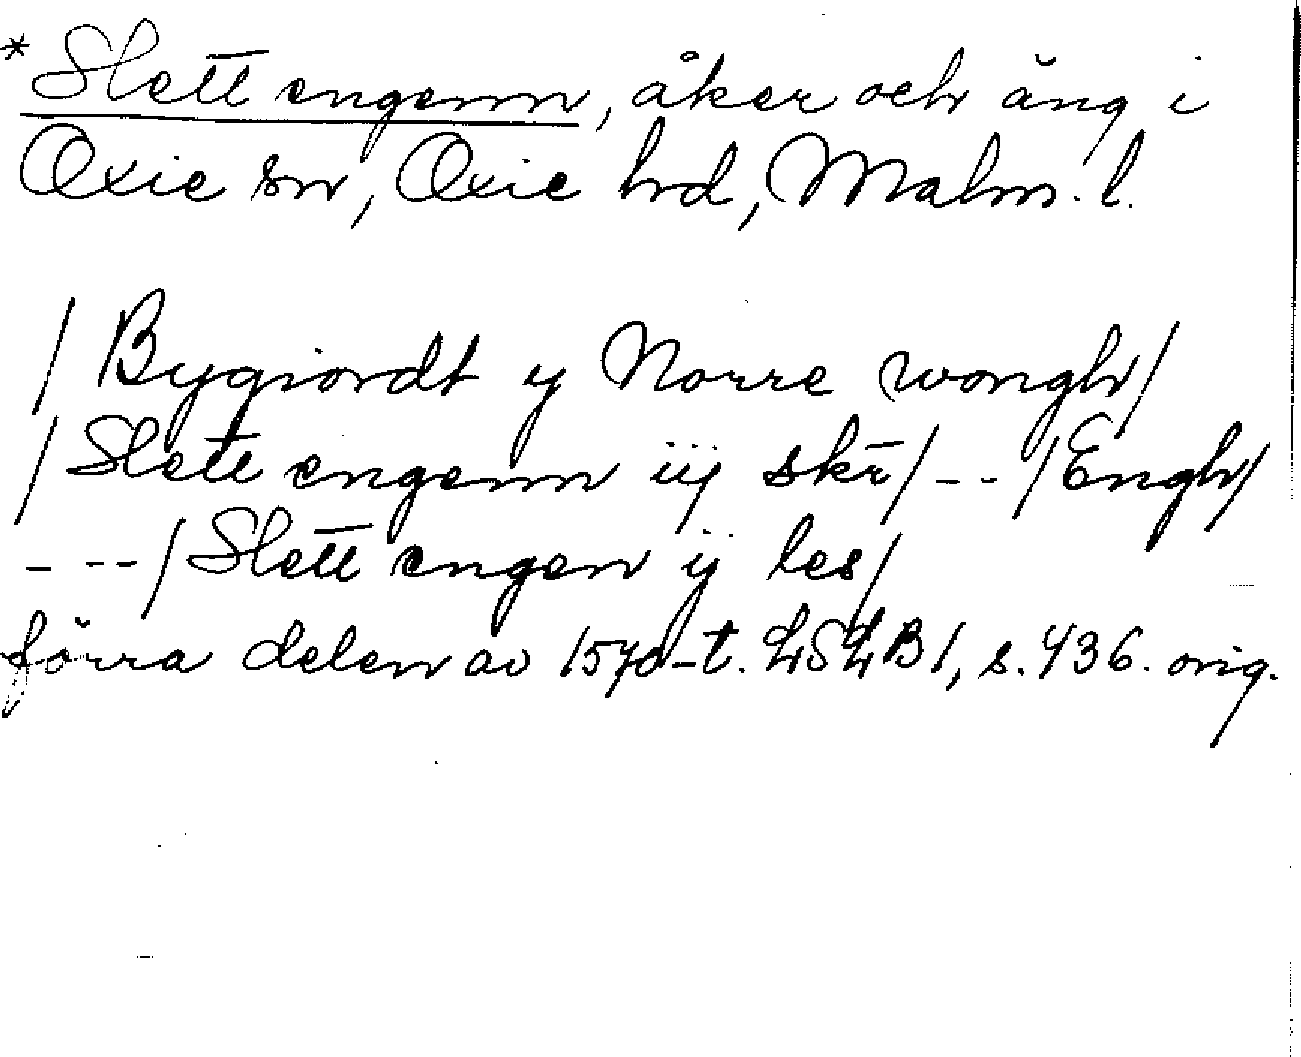 *Slett engenn, åker och äng i
Oxie sn, Oxie hrd, Malm. l.
/Bygiordt y Norre wongh/
/Slett engenn iij skr̄/ - - /Engh/
- - - /Slett engen ij les/
förra delen av 1570-t. LSLB1, s. 436. orig.